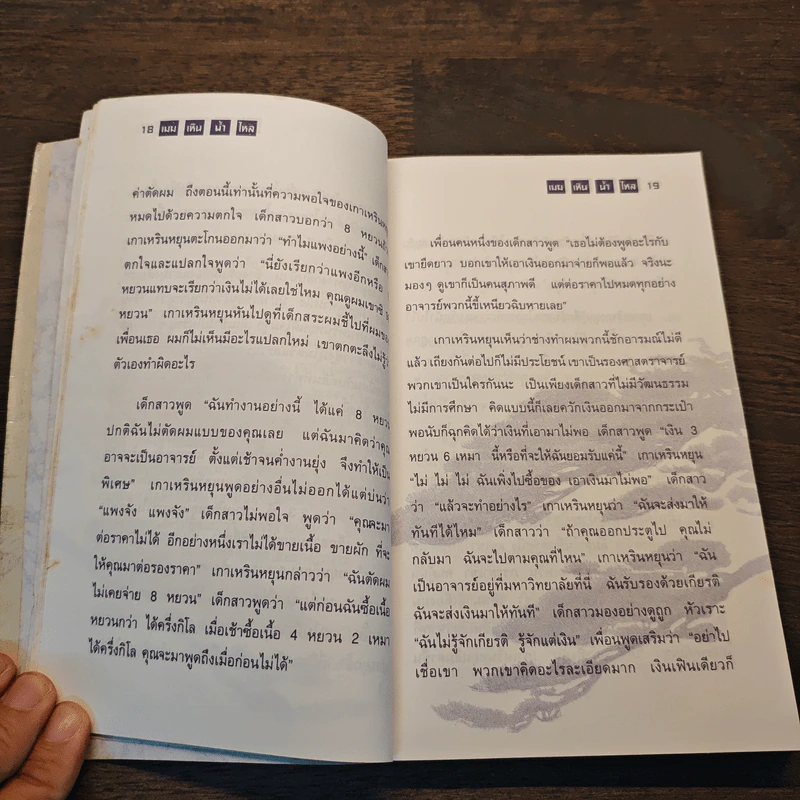 18 เมม เหิน น้ำ ไหล
ค่าตัดผม ถึงตอนนี้เท่านั้นที่ความพอใจของเกาเหรินหยุน
หมดไปด้วยความตกใจ เด็กสาวบอกว่า 8 หยวนถ้วน
เกาเหรินหยุนตะโกนออกมาว่า “ทำไมแพงอย่างนี้”
ตกใจและแปลกใจพูดว่า “นี่ยังเรียกว่าแพงอีกหรือ
หยวนแทบจะเรียกว่าเงินไม่ได้เลยใช่ไหม คุณดูผมเขาซิ
หยวน” เกาเหรินหยุนหันไปดูที่เด็กสระผมชี้ไปที่ผมของ
เพื่อนเธอ ผมก็ไม่เห็นมีอะไรแปลกใหม่ เขาตกตะลึงไม่รู้ว่า
ตัวเองทำผิดอะไร
เด็กสาวพูด “ฉันทำงานอย่างนี้ ได้แค่ 8 หยวน
ปกติฉันไม่ตัดผมแบบของคุณเลย แต่ฉันมาคิดว่าคุณ
อาจจะเป็นอาจารย์ ตั้งแต่เช้าจนค่ำงานยุ่ง จึงทำให้เป็น
พิเศษ” เกาเหรินหยุนพูดอย่างอื่นไม่ออกได้แต่บ่นว่า
“แพงจัง แพงจัง” เด็กสาวไม่พอใจ พูดว่า “คุณจะมา
ต่อราคาไม่ได้ อีกอย่างหนึ่งเราไม่ได้ขายเนื้อ ขายผัก ที่จะ
ให้คุณมาต่อรองราคา” เกาเหรินหยุนกล่าวว่า “ฉันตัดผม
ไม่เคยจ่าย 8 หยวน” เด็กสาวพูดว่า “แต่ก่อนฉันซื้อเนื้อ
หยวนกว่า ได้ครึ่งกิโล เมื่อเช้าซื้อเนื้อ 4 หยวน 2 เหมา
ได้ครึ่งกิโล คุณจะมาพูดถึงเมื่อก่อนไม่ได้”
เมม เหิน น้ำ ไหล 19
เพื่อนคนหนึ่งของเด็กสาวพูด “เธอไม่ต้องพูดอะไรกับ
เขายืดยาว บอกเขาให้เอาเงินออกมาจ่ายก็พอแล้ว จริงนะ
มองๆ ดูเขาก็เป็นคนสุภาพดี แต่ต่อราคาไปหมดทุกอย่าง
อาจารย์พวกนี้ขี้เหนียวฉิบหายเลย”
เกาเหรินหยุนเห็นว่าช่างทำผมพวกนี้ชักอารมณ์ไม่ดี
แล้ว เถียงกันต่อไปก็ไม่มีประโยชน์ เขาเป็นรองศาสตราจารย์
พวกเขาเป็นใครกันนะ เป็นเพียงเด็กสาวที่ไม่มีวัฒนธรรม
ไม่มีการศึกษา คิดแบบนี้ก็เลยควักเงินออกมาจากกระเป๋า
พอนับก็ฉุกคิดได้ว่าเงินที่เอามาไม่พอ เด็กสาวพูด “เงิน 3
หยวน 6 เหมา นี้หรือที่จะให้ฉันยอมรับแค่นี้” เกาเหรินหยุน
“ไม่ ไม่ ไม่ ฉันเพิ่งไปซื้อของ เอาเงินมาไม่พอ” เด็กสาว
ว่า “แล้วจะทำอย่างไร” เกาเหรินหยุนว่า “ฉันจะส่งมาให้
ทันทีได้ไหม” เด็กสาวว่า “ถ้าคุณออกประตูไป คุณไม่
กลับมา ฉันจะไปตามคุณที่ไหน” เกาเหรินหยุนว่า “ฉัน
เป็นอาจารย์อยู่ที่มหาวิทยาลัยที่นี่ ฉันรับรองด้วยเกียรติ
ฉันจะส่งเงินมาให้ทันที” เด็กสาวมองอย่างดูถูก หัวเราะ
“ฉันไม่รู้จักเกียรติ รู้จักแต่เงิน” เพื่อนพูดเสริมว่า “อย่าไป
เชื่อเขา พวกเขาคิดอะไรละเอียดมาก เงินเฟินเดียวก็